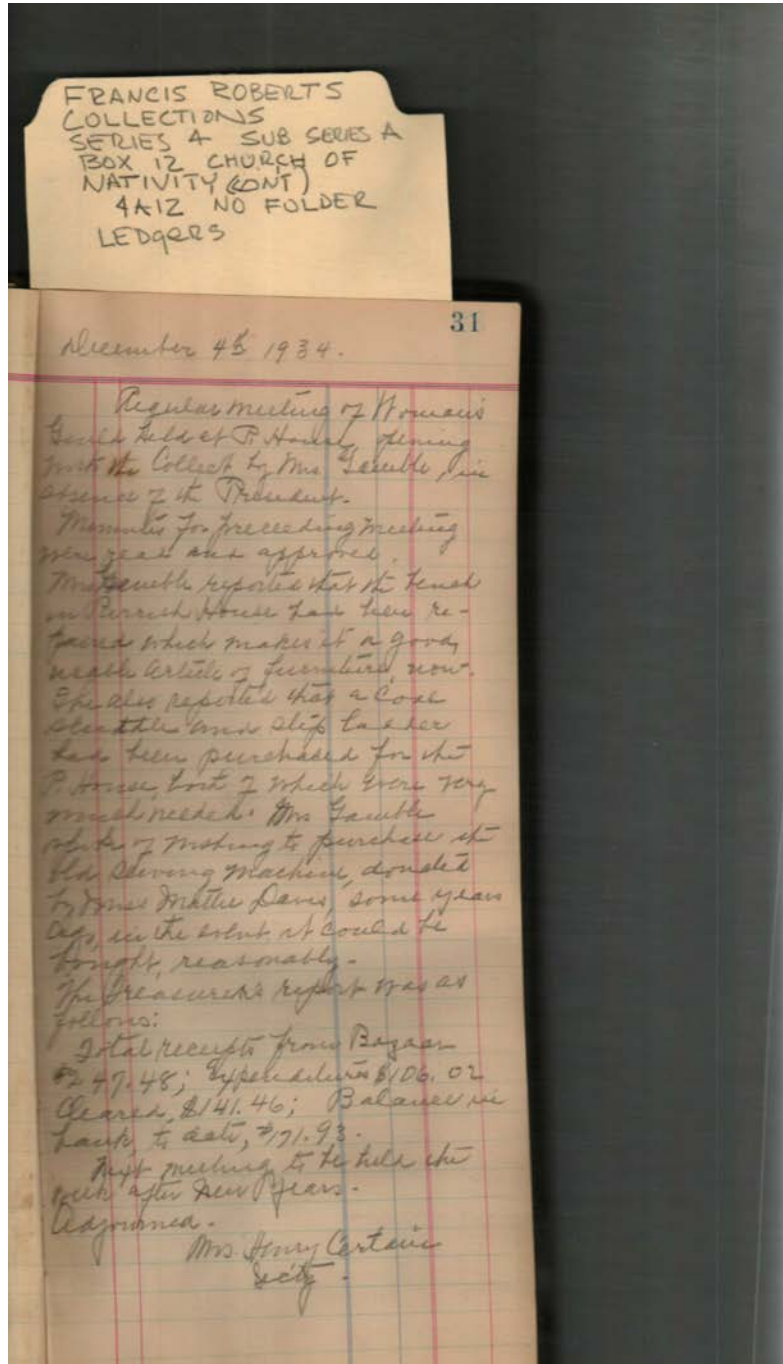 FRANCIS ROBERTS
COLLECTIONS
SERIES 4 SUB SERIES A
BOX 12 CHURCH OF
NATIVITY (CONT)
4A12 NO FOLDER
LEDGERS
31
December 4th 1934.
Regular meeting of Woman's
Guild held at P. House, opening
with the Collect by Mrs. Gamble, in
absence of the President.
Minutes for preceeding meeting
were read and approved.
Mrs Gamble reported that the bench
in Parrish House had been re-
paired which makes it a good,
usable article of furniture, now.
She also reported that a Coal
Scuttle and step ladder
had been purchased for the
P. House, both of which were very
much needed. Mrs Gamble
spoke of wishing to purchase the
old Sewing Machine, donated
by Miss Mattie Davis, some years
ago, in the event it could be
bought, reasonably.
The Treasurer's report was as
follows:
Total receipts from Bazaar
$247.48; Expenditures $106.02
Cleared, $141.46; Balance in
bank, to date, $171.93.
Next meeting to be held the
week after New Years.
Adjourned.
Mrs. Henry Certain
Sec'ty.